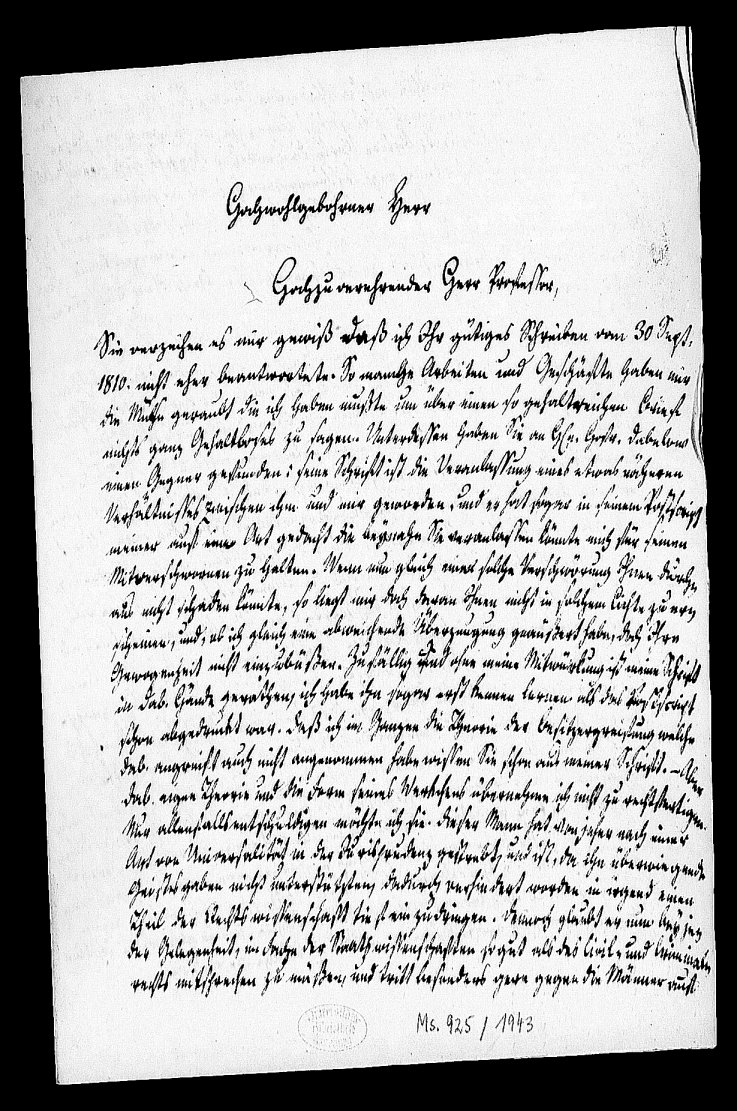 Hochwohlgebohrner Herr
Hochzuverehrender Herr Professor,
Sie verzeihen es mir gewiß daß ich Ihr gütiges Schreiben vom 30 Sept.
1810. nicht eher beantwortete. So manche Arbeiten und Geschäfte haben mir
die Muße geraubt die ich haben mußte um über einen so gehaltreichen Brief
nichts ganz Gehaltloses zu sagen. Unterdessen haben Sie an Hn. Hofr. Dabelow
einen Gegner gefunden: seine Schrift ist die Veranlassung eines etwas näheren
Verhältnisses zwischen ihm und mir geworden, und er hat sogar in seinem Postscript
meiner auf eine Art gedacht die beynahe Sie veranlassen könnte mich für seinen
Mitverschwornen zu halten. Wenn nun gleich eine solche Verschwörung Ihnen durch=
aus nicht schaden könnte, so liegt mir doch daran Ihnen nicht in solchem Lichte zu er=
scheinen, und, ob ich gleich eine abweichende Überzeugung geäußert habe, doch Ihre
Gewogenheit nicht einzubüßen. Zufällig und ohne meine Mitwürkung ist meine Schrift
in Dab. Hände gerathen, ich habe ihn sogar erst kennen lernen als das Postscript
schon abgedruckt war. Daß ich im Ganzen die Theorie der Besitzergreifung welche
Dab. angreift auch nicht angenommen habe wissen Sie schon aus meiner Schrift. – Aber
Dab. eigne Theorie und die Form seines Werkchens übernehme ich nicht zu rechtfertigen.
Nur allenfalls entschuldigen möchte ich sie. Dieser Mann hat von jeher nach einer
Art von Universalität in der Jurisprudenz gestrebt, und ist, da ihn überwiegende
Geistesgaben nicht unterstützten, dadurch verhindert worden in irgend einen
Theil der Rechtswissenschaft tief einzudringen. Dennoch glaubt er nun bey jeder
Gelegenheit, im Fache der Staatswissenschaften so gut als des Civil- und Criminal=
rechts mitsprechen zu müßen, und tritt besonders gern gegen die Männer auf
Ms. 925 / 1943